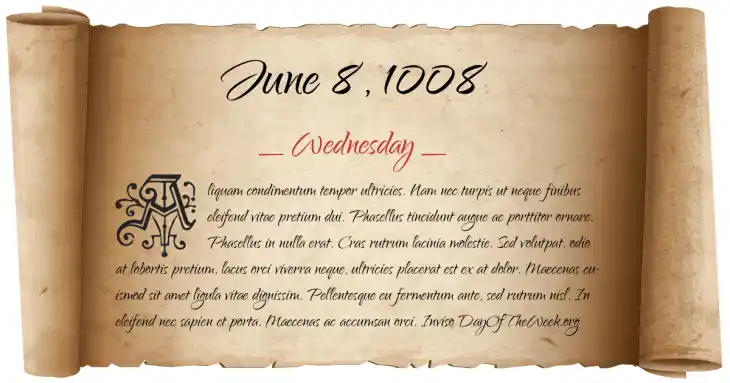 June 8, 1008
_ Wednesday _
Aliquam condimentum tempor ultricies. Nam nec turpis ut neque finibus
eleifend vitae pretium dui. Phasellus tincidunt augue ac porttitor ornare.
Phasellus in nulla erat. Cras rutrum lacinia molestie. Sed volutpat, odio
at lobortis pretium, lacus orci viverra neque, ultricies placerat est ex at dolor. Maecenas eu-
ismod sit amet ligula vitae dignissim. Pellentesque eu fermentum ante, sed rutrum nisl. In
eleifend nec sapien et porta. Maecenas ac accumsan orci. Inviso DayOfTheWeek.org